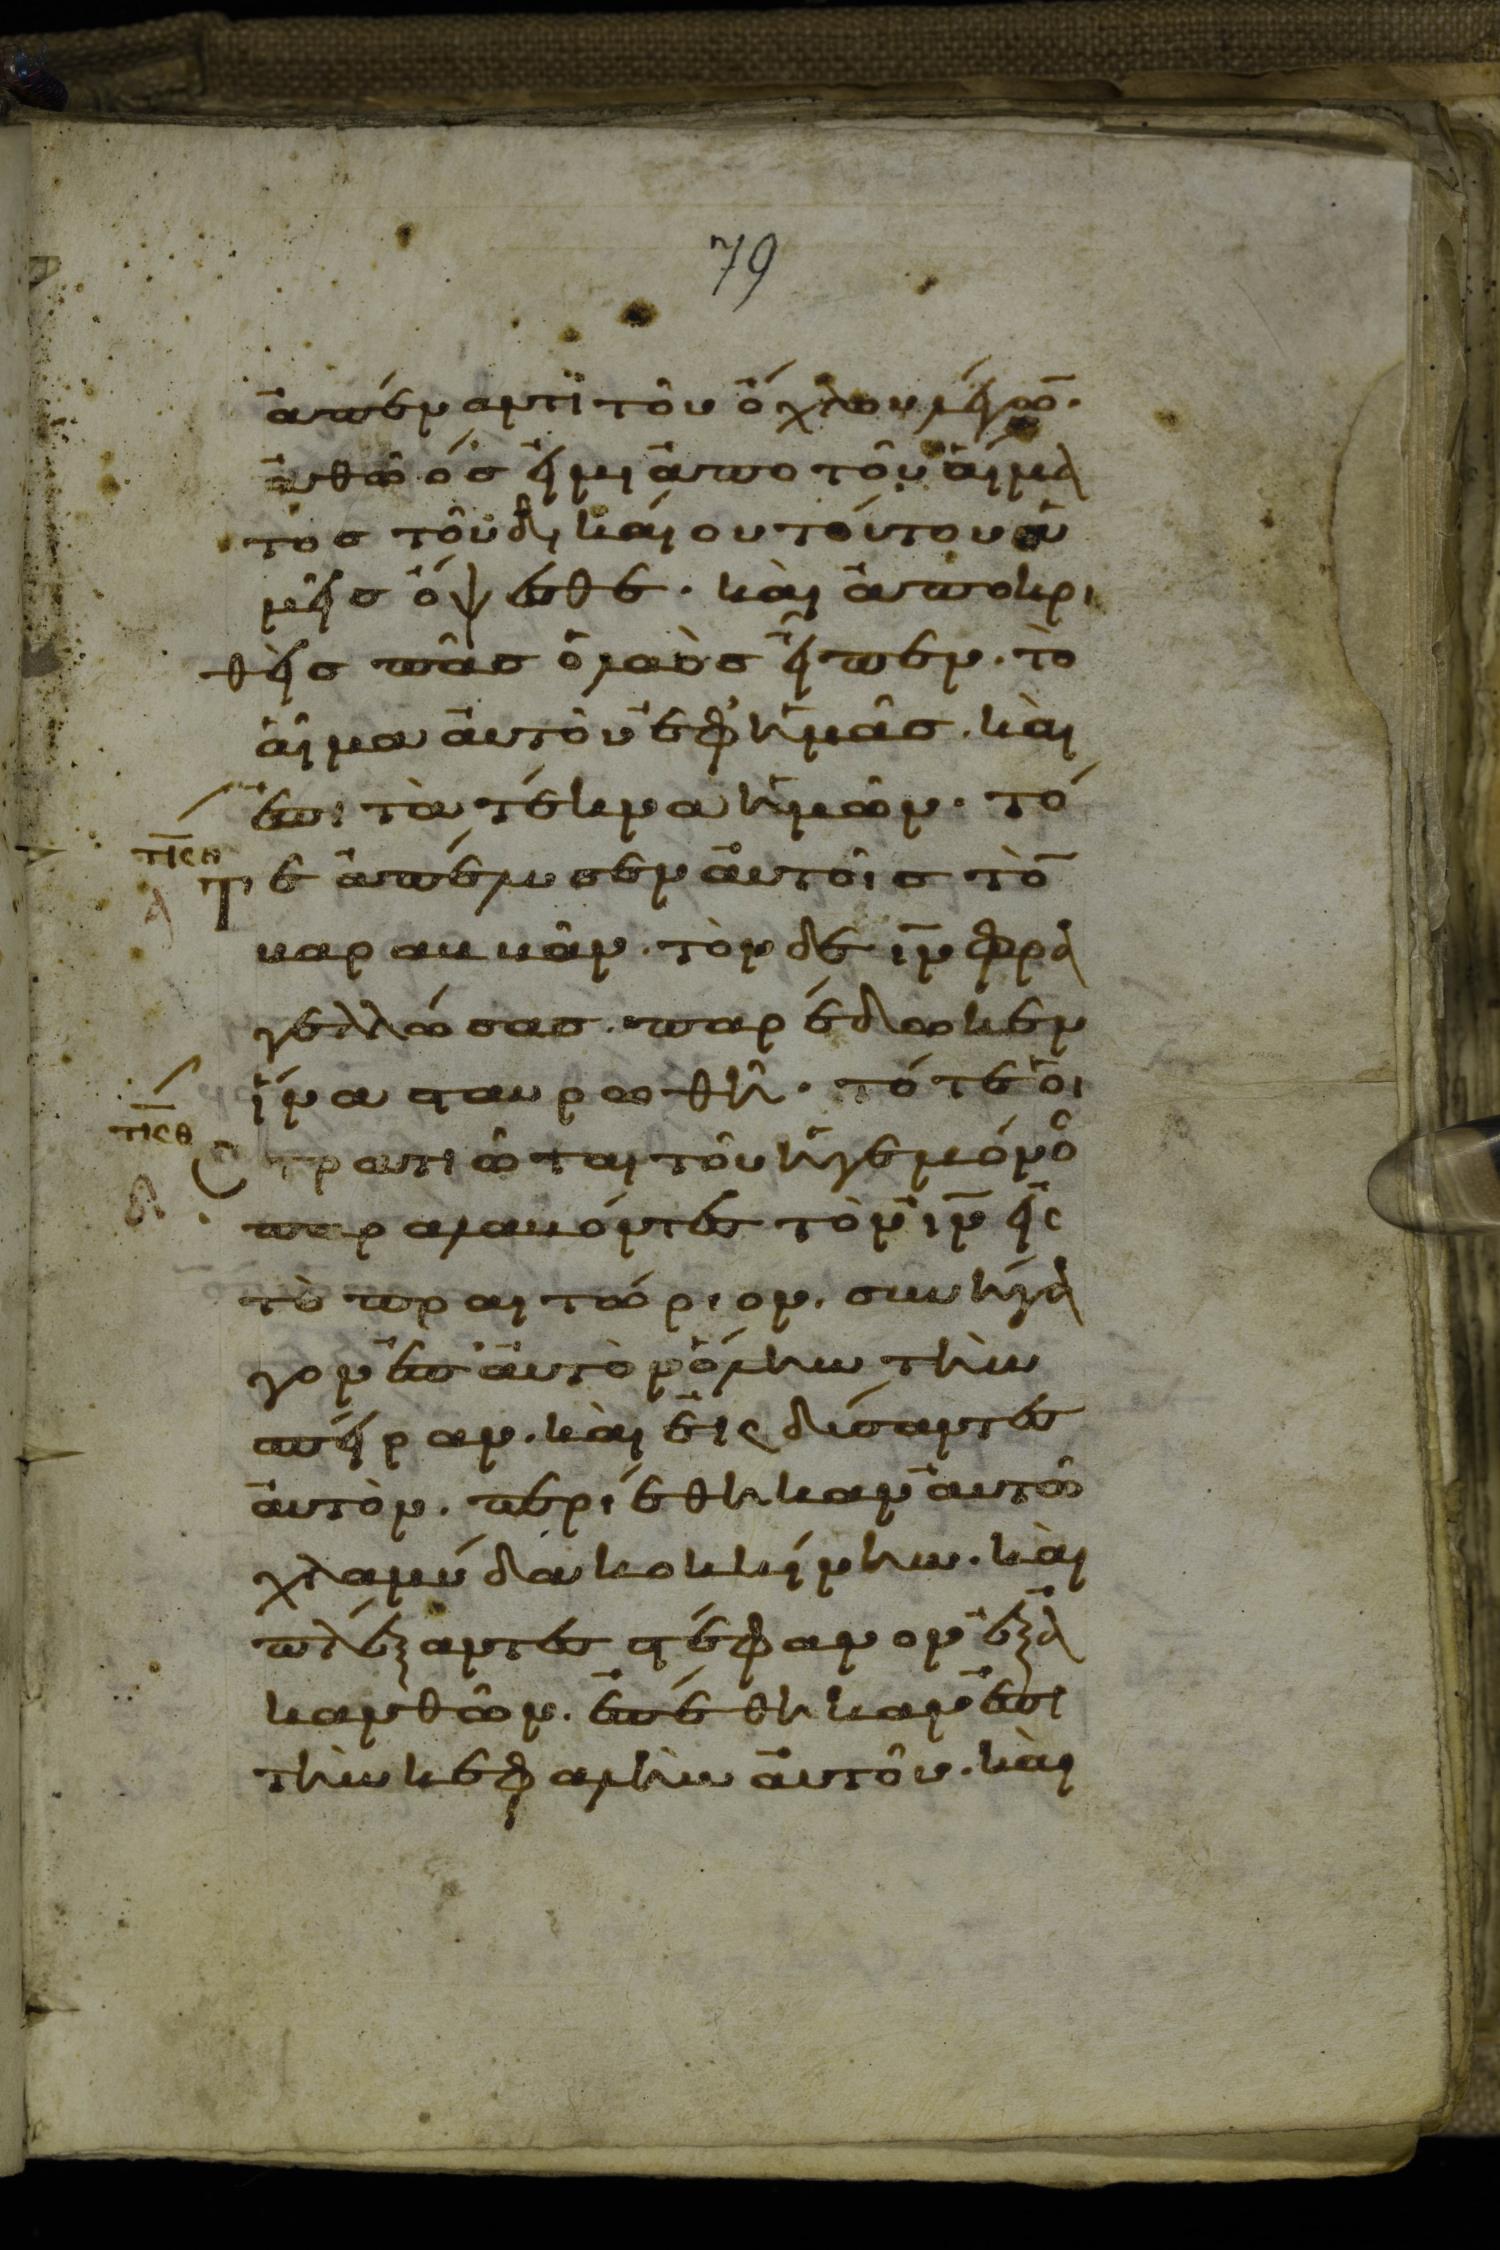 79
ἀπέναντι τοῦ ὄχλου λέγω̅.
ἀθῶός εἰμι ἀπο τοῦ αἵμα
τος τοῦ δικαίου τούτου ὑ
μεῖς ὄψεσθε. καὶ ἀποκρι
θεὶς πᾶς ὁ λαὸς εἶπεν. τὸ
αἷμα αὐτοῦ ἐφ' ἡμᾶς. καὶ
ἐπι τὰ τέκνα ἡμῶν. τό
τιση
Τε ἀπέλυσεν αὐτοῖς το̅
Α
βαραββᾶν. τὸν δὲ ι̅ν̅ φρα
γελλώσας. παρέδωκεν
ἵνα σταυρωθῆ. τότε ὁι
τιϛθ
Στρατιῶται τοῦ ἡγεμόνο
παραλαβόντες τὸν ι̅ν̅ εἰς
τὸ πραιτώριον. συνήγα
γον ἐπ' αὐτὸν ὅλην τὴν
σπεῖραν. καὶ ἐκδύσαντες
αὐτὸν. περιέθηκαν αὐτῶ
χλαμύδα κοκκίνην. καὶ
πλέξαντες στέφανον ἐξ ἀ
κανθῶν. ἐπέθηκαν ἐπι
τὴν κεφαλὴν αὐτοῦ. καὶ